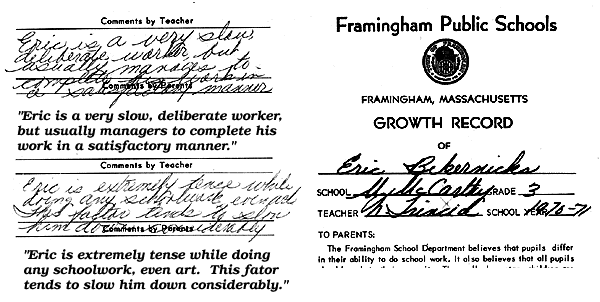 Comments by Teacher
Eric is a very slow,
deliberate worker but
usually manages to
complete his work in
a satisfactory manner
Comments by Parents
"Eric is a very slow, deliberate worker,
but usually managers to complete his
work in a satisfactory manner."
Comments by Teacher
Eric is extremely tence while
doing any schoolwork, even art.
This factor tends to slow
him down considerably
Comments by Parents
"Eric is extremely tense while doing
any schoolwork, even art. This fator
tends to slow him down considerably."
Framingham Public Schools
FRAMINGHAM, MASSACHUSETTS
GROWTH RECORD
OF
Eric Bikernicks
SCHOOL M. McCarthy GRADE 3
TEACHER SCHOOL YEAR 1970-71
TO PARENTS:
The Framingham School Department believes that pupils differ
in their ability to do school work. It also believes that all pupils